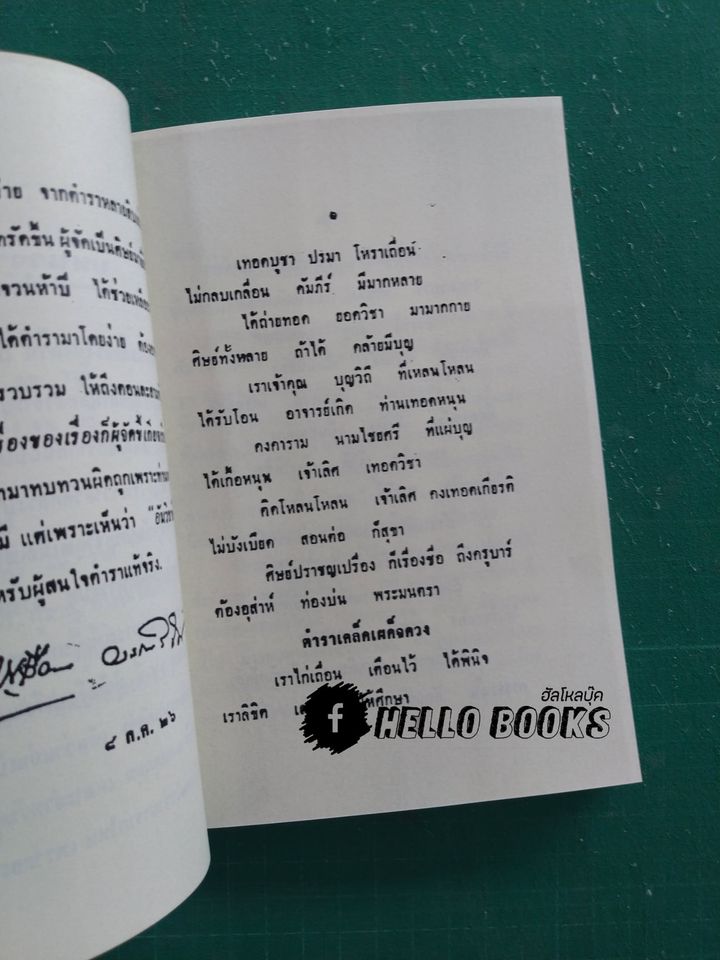 ่าย จากตำราหลาย
ครัดขึ้น ผู้จัดเป็นศิษย์
จวนห้าปี ได้ช่วย
ได้ตำรามาโดยง่าย ต้อง
รวบรวม ให้ถึงตอน
เรื่องของเรื่องก็ผู้จัดขี้เกียจ
ามาทบทวนผิดถูกเพราะท่าน
มี แต่เพราะเห็นว่า
หรับผู้สนใจตำราแท้จริง.
๘ ต.ค. ๒๖
๑
เทอดบูชา ปรมา โหราเถื่อน
ไม่กลบเกลื่อน คัมภีร์ มีมากหลาย
ได้ถ่ายทอด ยอดวิชา มามากกาย
ศิษย์ทั้งหลาย ถ้าได้ คล้ายมีบุญ
เราเจ้าคุณ บุญวิถี ที่เหลนโหลน
ได้รับโอน อาจารย์เกิด ท่านเทอดหนุน
คงคาราม นามไชยศรี ที่แผ่บุญ
ได้เกื้อหนุน เจ้าเลิศ เทอดวิชา
คิดโหลนโหลน เจ้าเลิศ คงเทอดเกียรติ
ไม่บังเบียด สอนต่อ ก็สุขา
ศิษย์ปราชญเปรื่อง ก็เรื่องชื่อ ถึงครูบาร์
ต้องอุส่าห์ ท่องบ่น พระมนตรา
ตำราเคล็ดเผด็จดวง
เราไก่เถื่อน เตือนไว้ ได้พินิจ
เราลิขิต ให้ศึกษา
ฮัลโหลบุ๊ค
f HELLO BOOKS